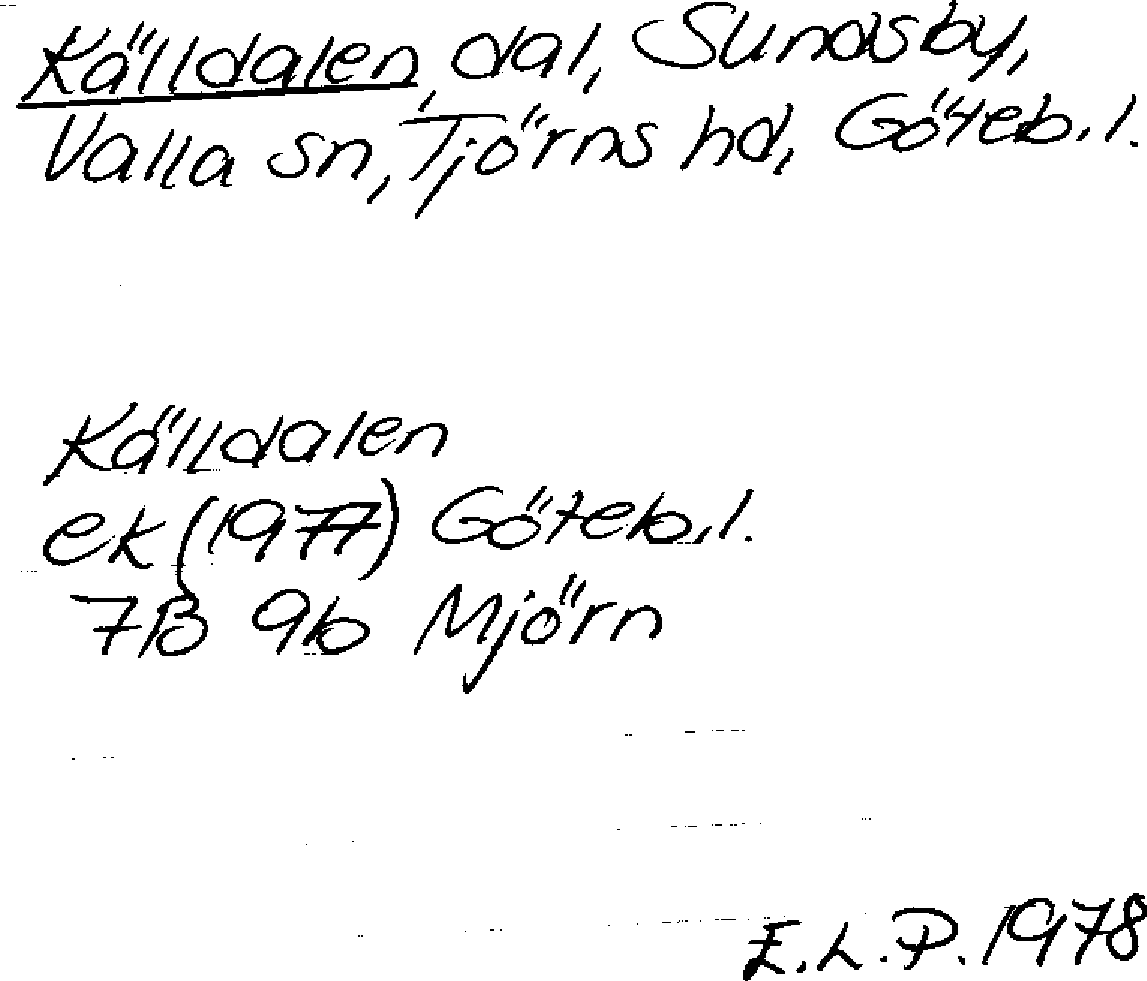 Källdalen, dal, Sundsby,
Valla sn, Tjörns hd, Göteb.l.
Källdalen
ek (1977) Göteb.l.
7B 9b Mjörn
E.L.P. 1978